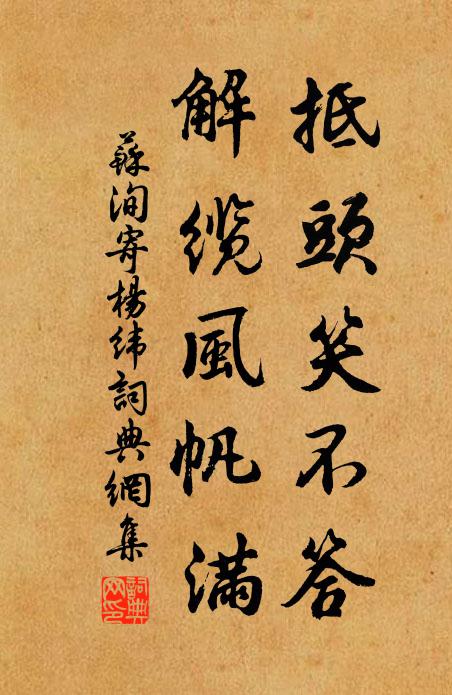 抵頭笑不答
解纜風帆滿
蘇洵寄楊緯詞典網集
詞典網印